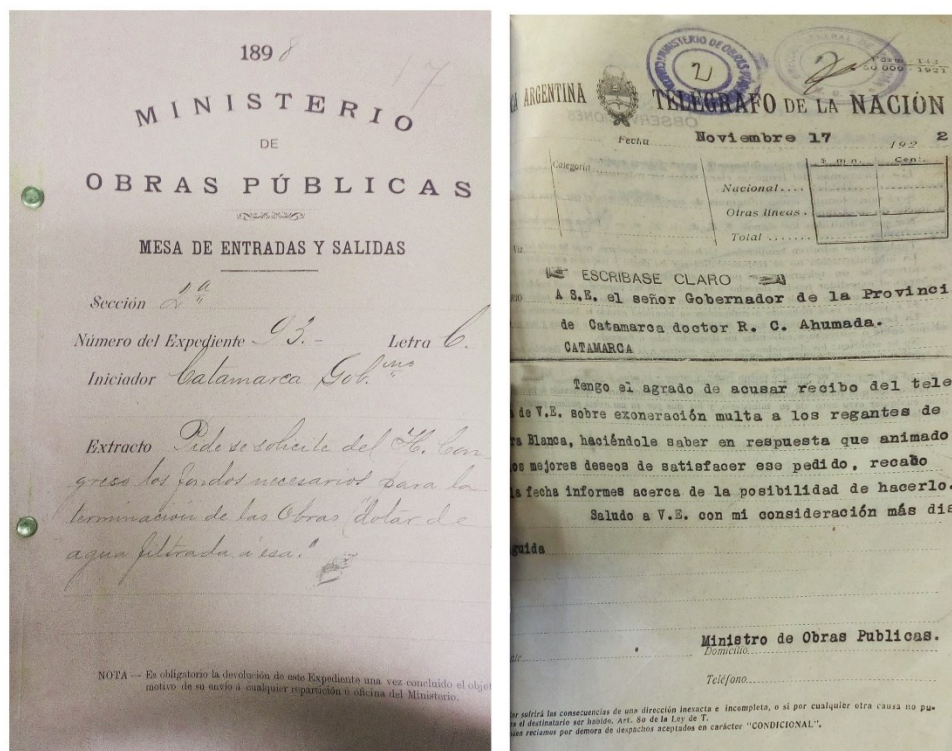 1898
MINISTERIO
DE
OBRAS PÚBLICAS
MESA DE ENTRADAS Y SALIDAS
Sección 2ª
Número del Expediente 93.- Letra C.
Iniciador Catamarca Gob.no
Extracto Pide se solicite del H. Con
greso los fondos necesarios para la
terminacion de las Obras "dotar de
agua filtrada á esa."
NOTA — Es obligatorio la devolución de este Expediente una vez concluido el objet
motivo de su envío á cualquier repartición ú oficina del Ministerio.
MINISTERIO DE OBRAS
50.000 - 1921
ARGENTINA TELÉGRAFO DE LA NACIÓN
OBSERVACIONES
Fecha Noviembre 17 192 2
Categoría $ m/n. Cent.
Nacional....
Otras líneas.
Total .......
ESCRIBASE CLARO
A S.E. el señor Gobernador de la Provinci
de Catamarca doctor R. C. Ahumada.
CATAMARCA
Tengo el agrado de acusar recibo del tele
de V.E. sobre exoneración multa a los regantes de
Blanca, haciéndole saber en respuesta que animado
os mejores deseos de satisfacer ese pedido, recabo
a fecha informes acerca de la posibilidad de hacerlo.
Saludo a V.E. con mi consideración más dis
guida
Ministro de Obras Publicas.
Domicilio
Teléfono
sufrirá las consecuencias de una dirección inexacta e incompleta, o si por cualquier otra causa no pu-
el destinatario ser habido. Art. 80 de la Ley de T.
reclamos por demora de despachos aceptados en carácter "CONDICIONAL".